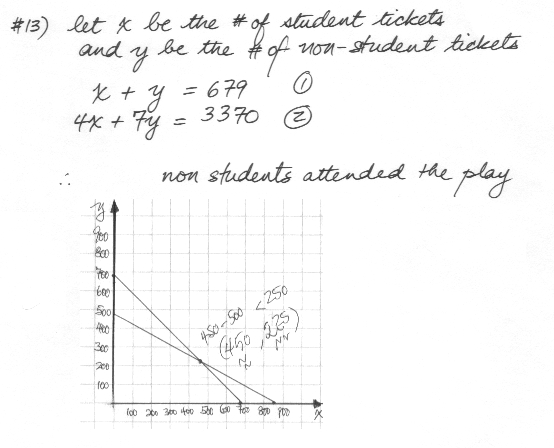 #13) let x be the # of student tickets
and y be the # of non-student tickets
x + y = 679 ①
4x + 7y = 3370 ②
∴ non students attended the play
y
900
800
700
600
500
400
300
200
100
450-500 <250
(450, 225)
100 200 300 400 500 600 700 800 900 x